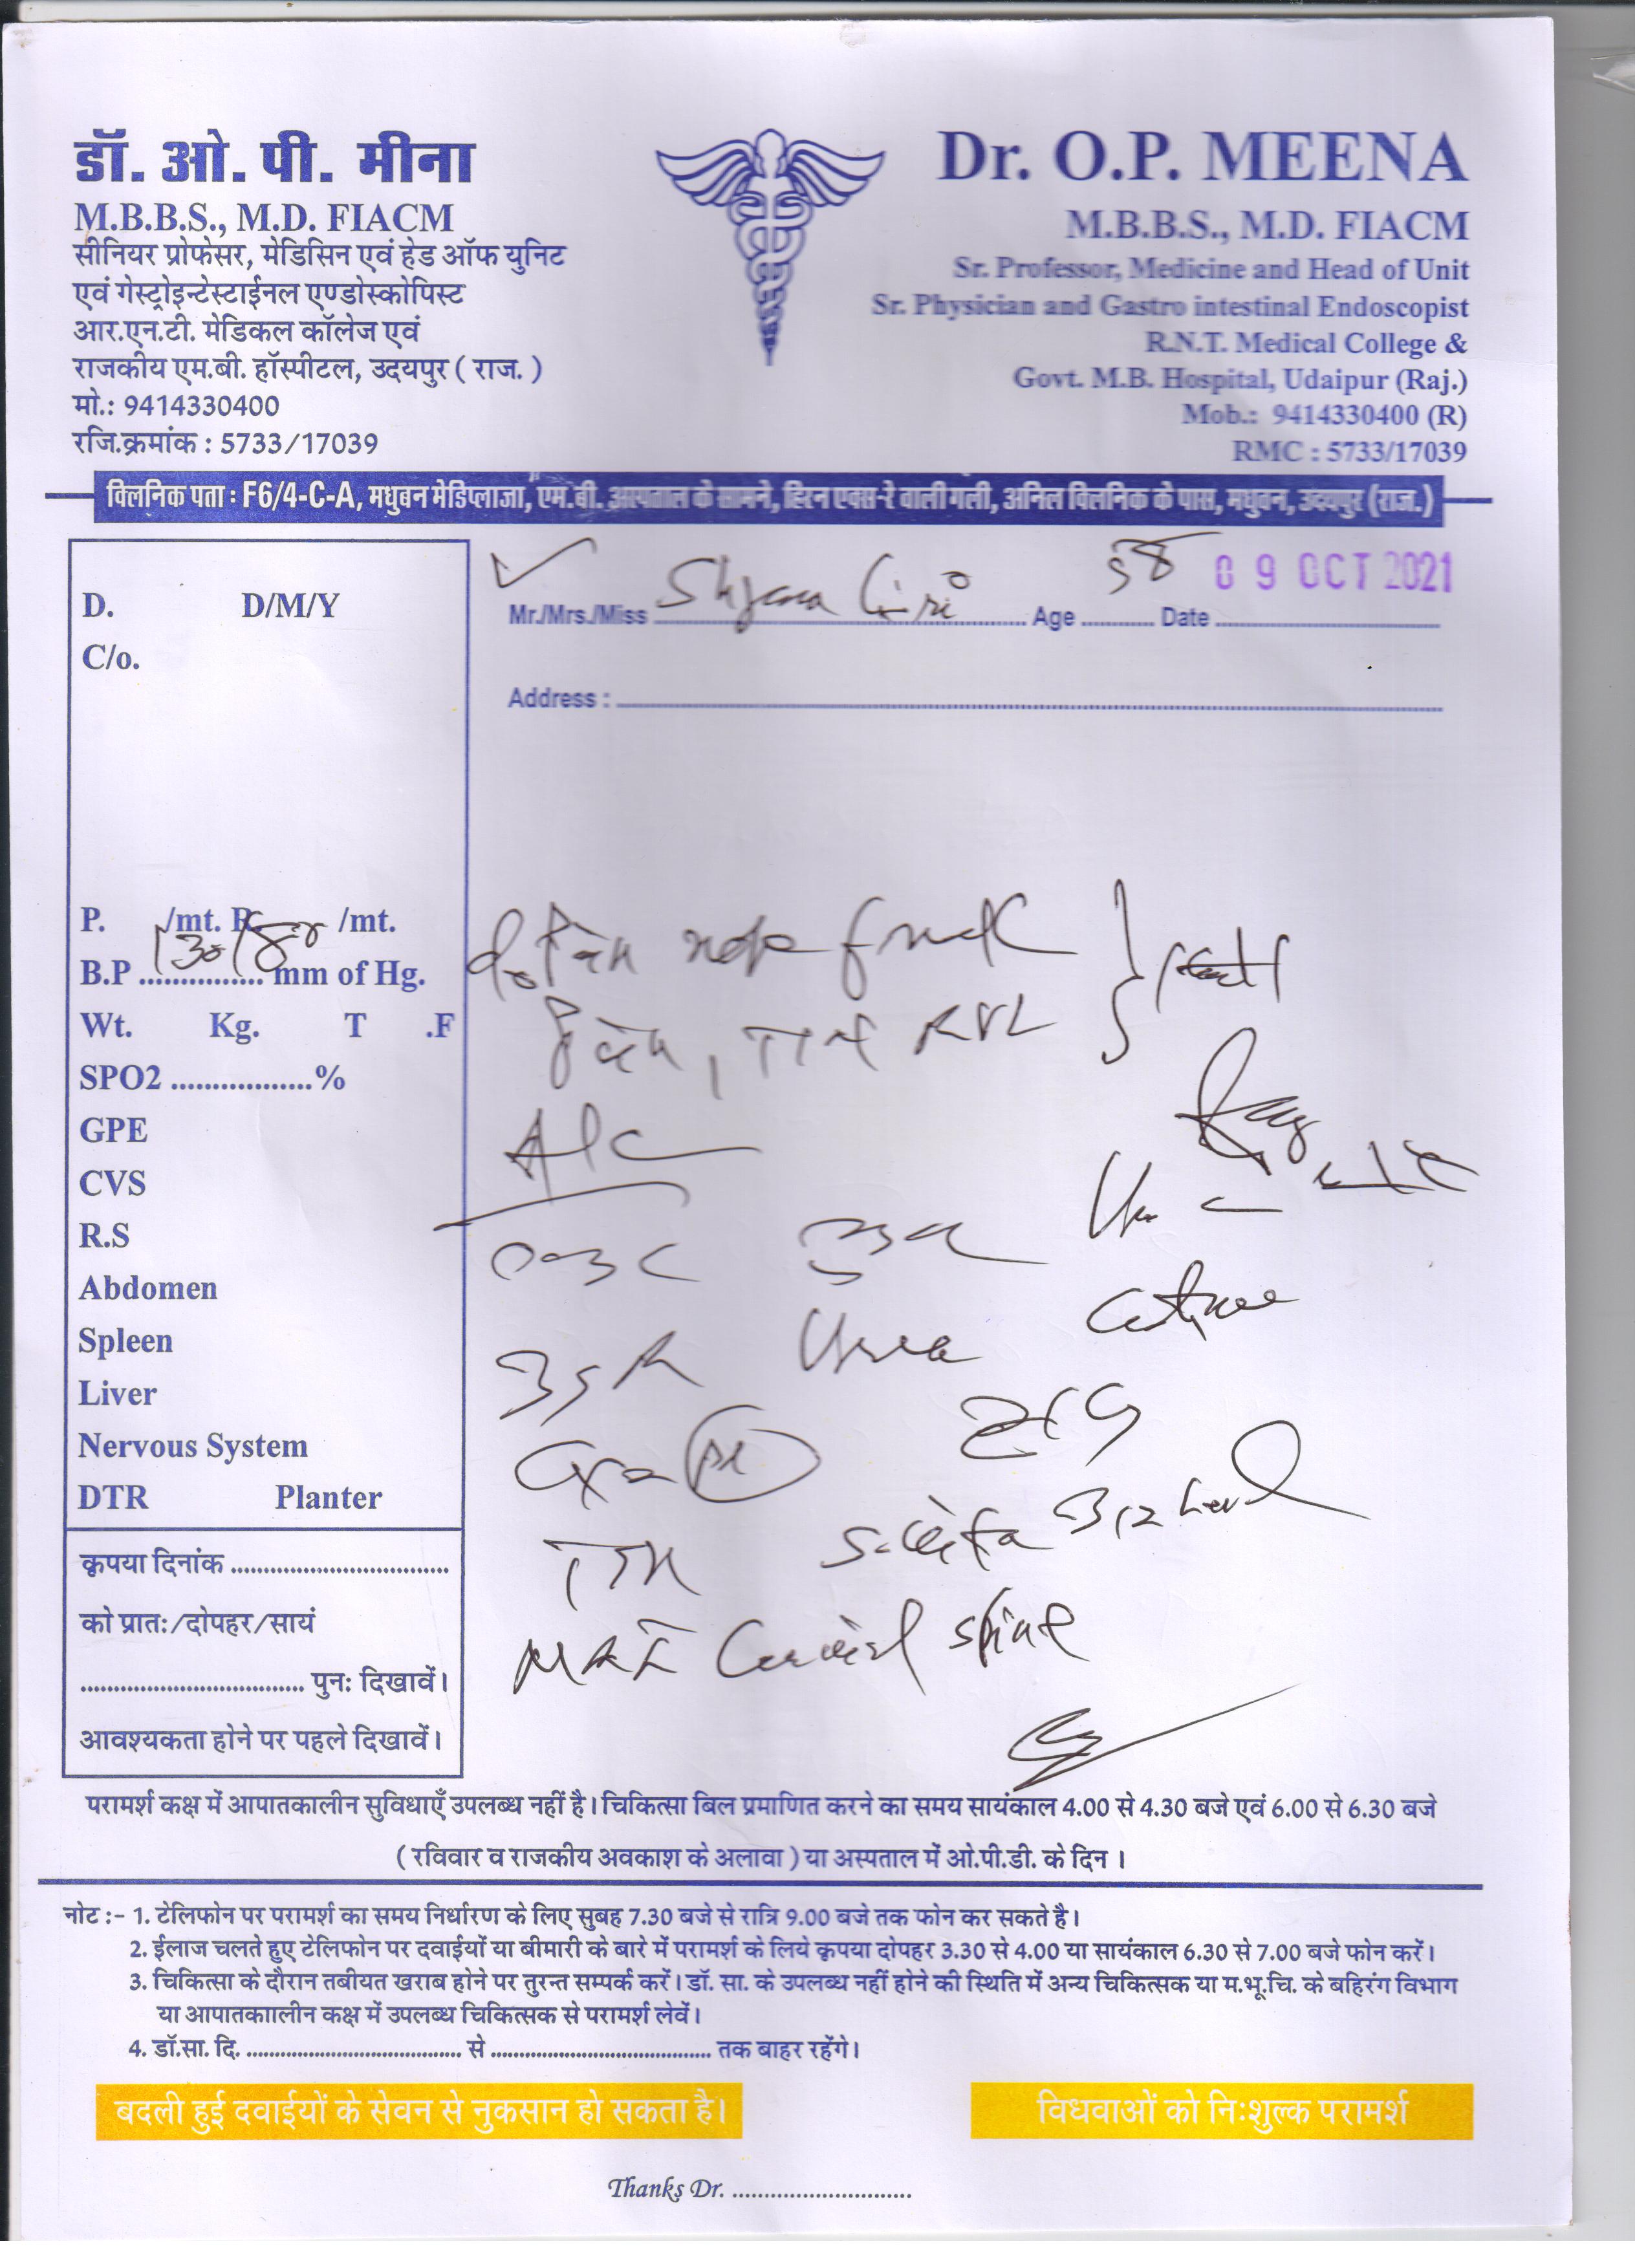 डॉ. ओ. पी. मीना
M.B.B.S., M.D. FIACM
सीनियर प्रोफेसर, मेडिसिन एवं हेड ऑफ युनिट
एवं गेस्ट्रोइन्टेस्टाईनल एण्डोस्कोपिस्ट
आर.एन.टी. मेडिकल कॉलेज एवं
राजकीय एम.बी. हॉस्पीटल, उदयपुर ( राज. )
मो.: 9414330400
रजि.क्रमांक : 5733/17039
Dr. O.P. MEENA
M.B.B.S., M.D. FIACM
Sr. Professor, Medicine and Head of Unit
Sr. Physician and Gastro intestinal Endoscopist
R.N.T. Medical College &
Govt. M.B. Hospital, Udaipur (Raj.)
Mob.: 9414330400 (R)
RMC : 5733/17039
क्लिनिक पता : F6/4-C-A, मधुबन मेडिप्लाजा, एम.बी. अस्पताल के सामने, हिरन एक्स-रे वाली गली, अनिल क्लिनिक के पास, मधुबन, उदयपुर (राज.)
Mr./Mrs./Miss Shyama Giri Age 58 Date 09 OCT 2021
Address :
D. D/M/Y
C/o.
P. /mt. R. /mt.
B.P 130/80 mm of Hg.
Wt. Kg. T .F
SPO2 .................%
GPE
CVS
R.S
Abdomen
Spleen
Liver
Nervous System
DTR Planter
कृपया दिनांक
को प्रातः/दोपहर/सायं
पुनः दिखावें।
आवश्यकता होने पर पहले दिखावें।
Pain
Urea
TSH B12 level
MRI Cervical spine
परामर्श कक्ष में आपातकालीन सुविधाएँ उपलब्ध नहीं है। चिकित्सा बिल प्रमाणित करने का समय सायंकाल 4.00 से 4.30 बजे एवं 6.00 से 6.30 बजे
( रविवार व राजकीय अवकाश के अलावा ) या अस्पताल में ओ.पी.डी. के दिन ।
नोट :- 1. टेलिफोन पर परामर्श का समय निर्धारण के लिए सुबह 7.30 बजे से रात्रि 9.00 बजे तक फोन कर सकते है।
2. ईलाज चलते हुए टेलिफोन पर दवाईयों या बीमारी के बारे में परामर्श के लिये कृपया दोपहर 3.30 से 4.00 या सायंकाल 6.30 से 7.00 बजे फोन करें।
3. चिकित्सा के दौरान तबीयत खराब होने पर तुरन्त सम्पर्क करें। डॉ. सा. के उपलब्ध नहीं होने की स्थिति में अन्य चिकित्सक या म.भू.चि. के बहिरंग विभाग
या आपातकाालीन कक्ष में उपलब्ध चिकित्सक से परामर्श लेवें।
4. डॉ.सा. दि. ...................................... से ...................................... तक बाहर रहेंगे।
बदली हुई दवाईयों के सेवन से नुकसान हो सकता है।
विधवाओं को निःशुल्क परामर्श
Thanks Dr. ..............................